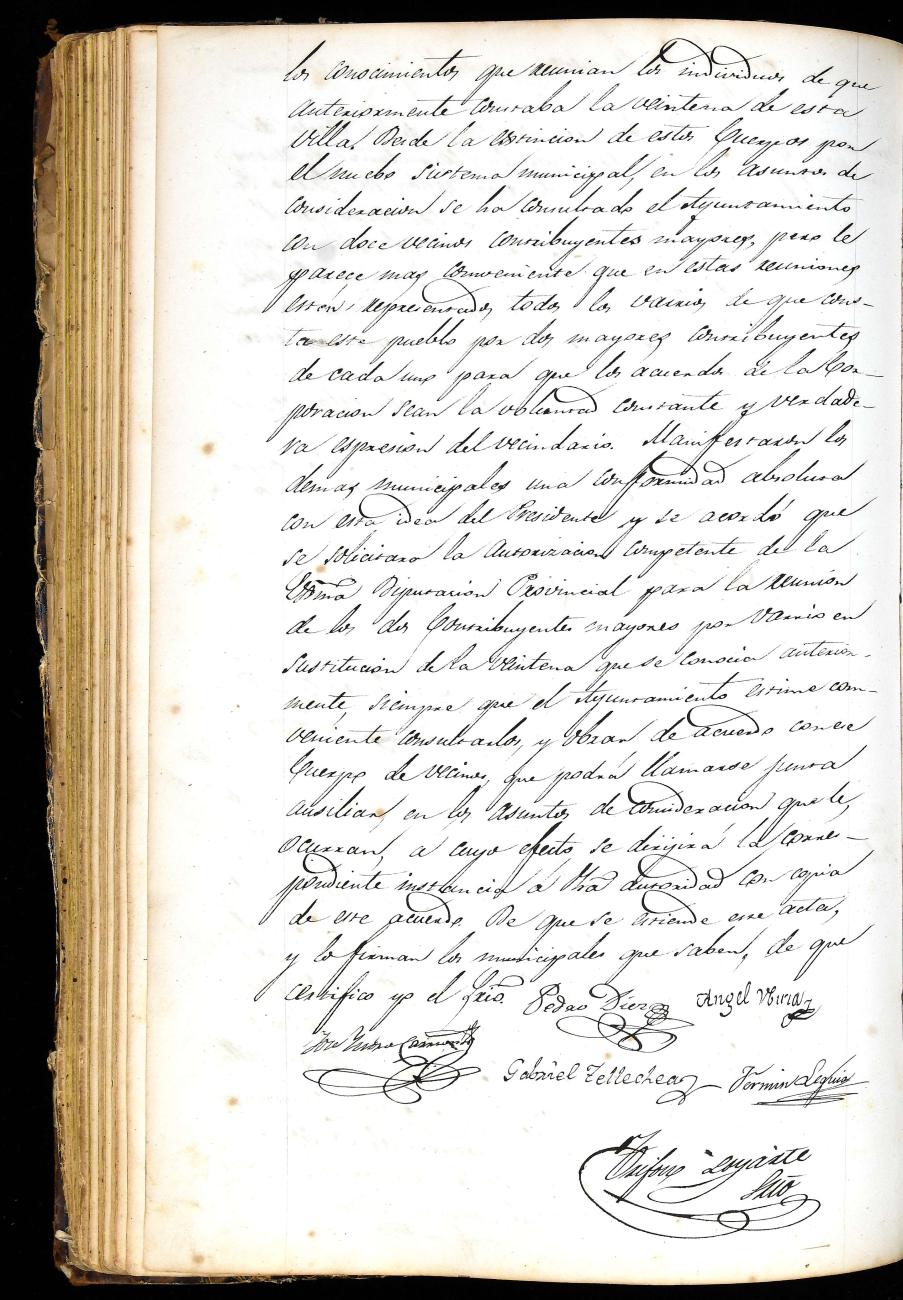 los conocimientos que reunian los individuos de que
anteriormente constaba la veintena de esta
villa. Desde la estincion de estos Cuerpos por
el nuebo sistema municipal, en los asuntos de
consideracion se ha consultado el Ayuntamiento
con doce vecinos contribuyentes mayores, pero le
parece mas conveniente que en estas reuniones
estén representados todos los varrios de que cons-
ta este pueblo por dos mayores contribuyentes
de cada uno para que los acuerdos de la Cor-
poracion sean la voluntad constante y verdade-
ra espresion del vecindario. Manifestaron los
demas municipales una conformidad absoluta
con esta idea del Presidente y se acordó que
se solicitara la autorizacion competente de la
Exma Diputacion Provincial para la reunion
de los dos Contribuyentes mayores por varrio en
sustitucion de la veintena que se conocia anterior-
mente, siempre que el Ayuntamiento estime con-
veniente consultarlos, y obrar de acuerdo con ese
Cuerpo de vecinos, que podrá llamarse junta
ausiliar, en los asuntos de consideracion que le,
ocurran, a cuyo efecto se dirijirá la corres-
pondiente instancia á dha autoridad con copia
de este acuerdo. De que se estiende este acta,
y lo firman los municipales que saben, de que
certifico yo el Srio.
Pedro Diez Angel
José
Gabriel Tellechea Fermin Leguia
Trifon Srio